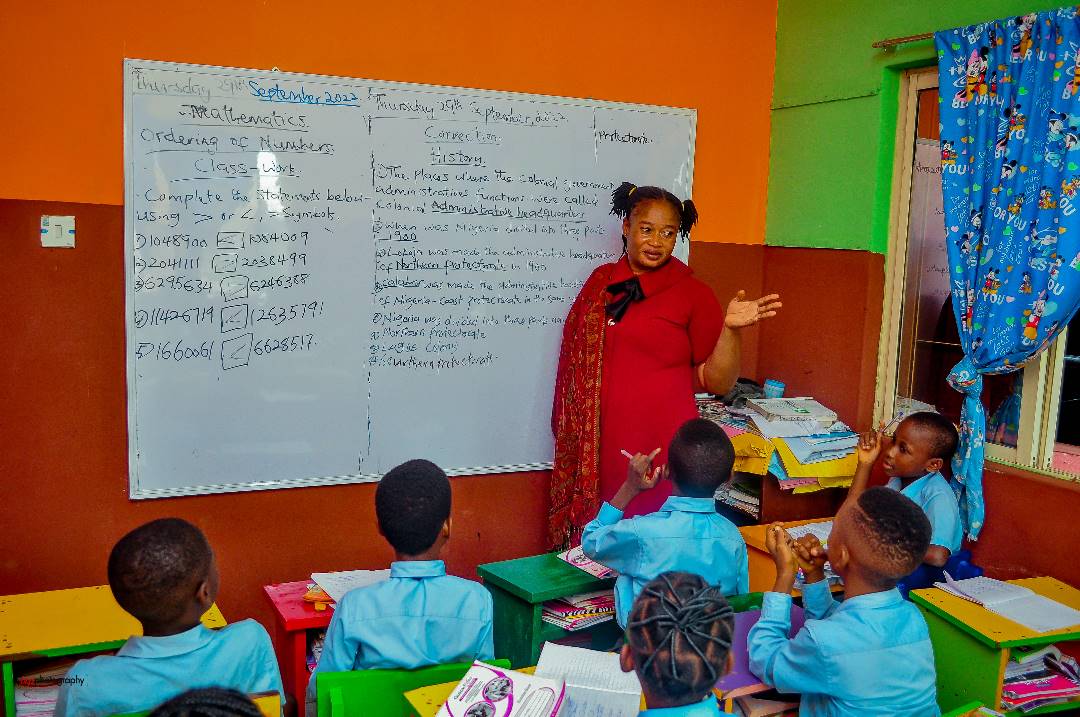 Thursday 29th September 2022
Mathematics
Ordering of Numbers
Class-work
Complete the statements below
using > or <, = symbols
1) 1048900 < 1084009
2) 2041111 > 2038499
3) 6295634 > 6246388
4) 11426719 < 12635791
5) 1660061 < 6628517
Thursday 29th September, 2022
Correction
History
1) The Places where the colonial government
administrative functions were called
Colonial Administrative headquarters
2) When was Nigeria divided into three parts
1900
was made the administrative headquarters
of Northern protectorate in 1900
Calabar was made the administrative
of Nigeria-coast protectorate in the same
5) Nigeria was divided into three parts
Northern protectorate
Lagos Colony
protectorate
YOU
FOR YOU
YOU
photography